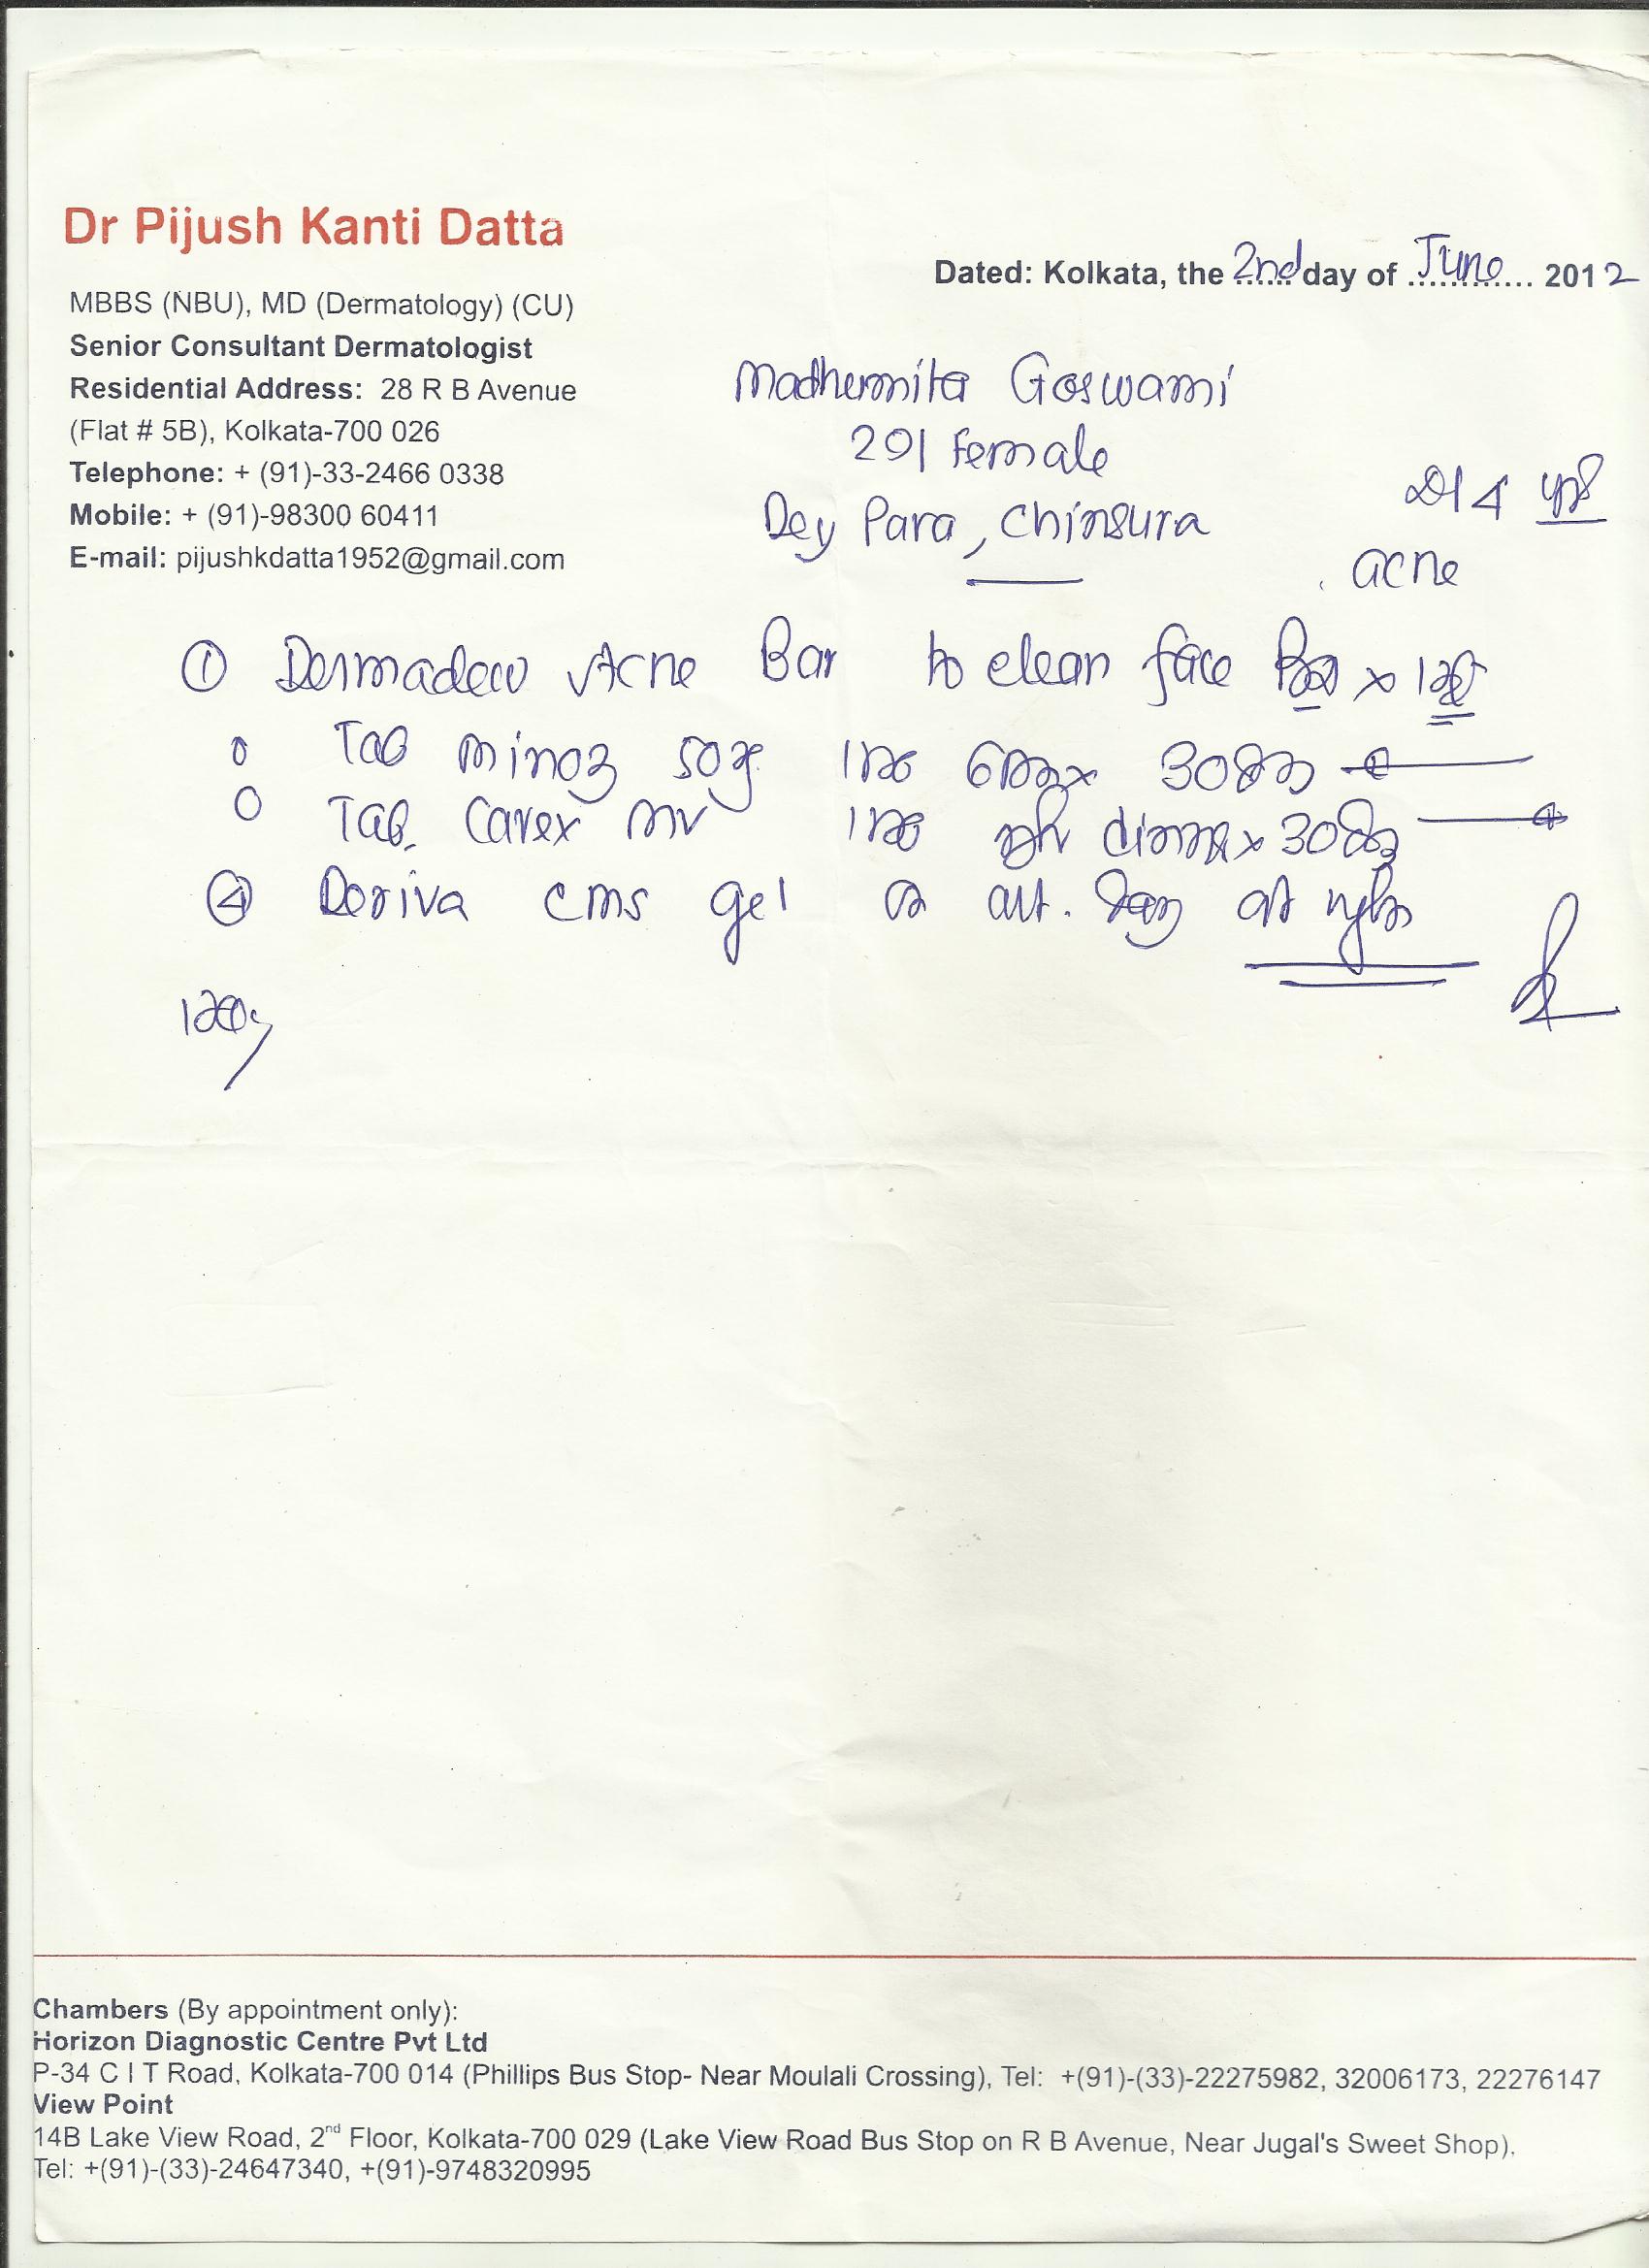 Dr Pijush Kanti Datta
MBBS (NBU), MD (Dermatology) (CU)
Senior Consultant Dermatologist
Residential Address: 28 R B Avenue
(Flat # 5B), Kolkata-700 026
Telephone: + (91)-33-2466 0338
Mobile: + (91)-98300 60411
E-mail: pijushkdatta1952@gmail.com
Dated: Kolkata, the 2nd day of June 2012
Madhumita Goswami
29/ Female
Dey Para, Chinsura
4 yrs
acne
① Dermadew Acne Bar to clean face
Tab Minoz 50 30
Tab. Carex 30
④ Deriva CMS gel alt. day at night
Chambers (By appointment only):
Horizon Diagnostic Centre Pvt Ltd
P-34 C I T Road, Kolkata-700 014 (Phillips Bus Stop- Near Moulali Crossing), Tel: +(91)-(33)-22275982, 32006173, 22276147
View Point
14B Lake View Road, 2nd Floor, Kolkata-700 029 (Lake View Road Bus Stop on R B Avenue, Near Jugal's Sweet Shop).
Tel: +(91)-(33)-24647340, +(91)-9748320995